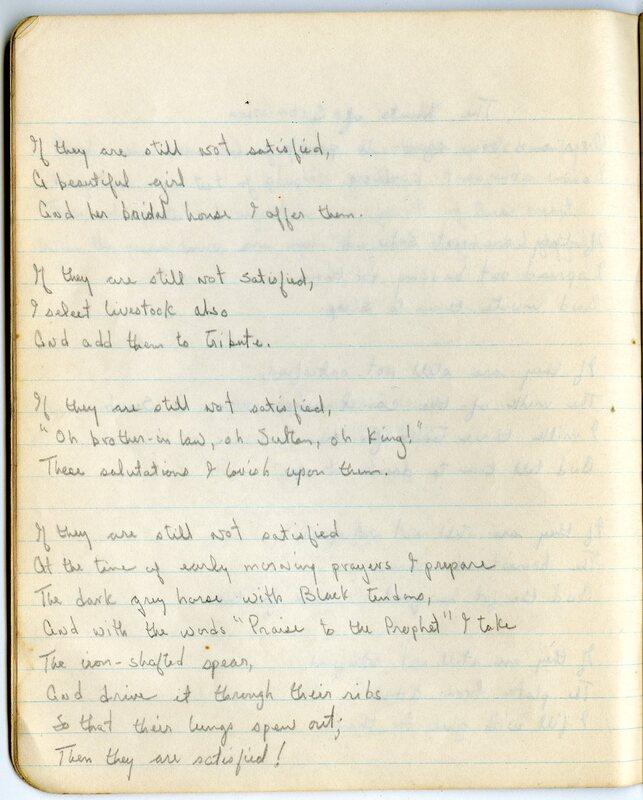 If they are still not satisfied,
A beautiful girl
And her bridal house I offer them.
If they are still not satisfied,
I select livestock also
And add them to Tribute.
If they are still not satisfied,
"Oh brother-in law, oh Sultan, oh King!"
These salutations I lavish upon them.
If they are still not satisfied
At the time of early morning prayers I prepare
The dark grey horse with Black tendons,
And with the words "Praise to the Prophet" I take
The iron-shafted spear,
And drive it through their ribs
So that their lungs spew out;
Then they are satisfied!